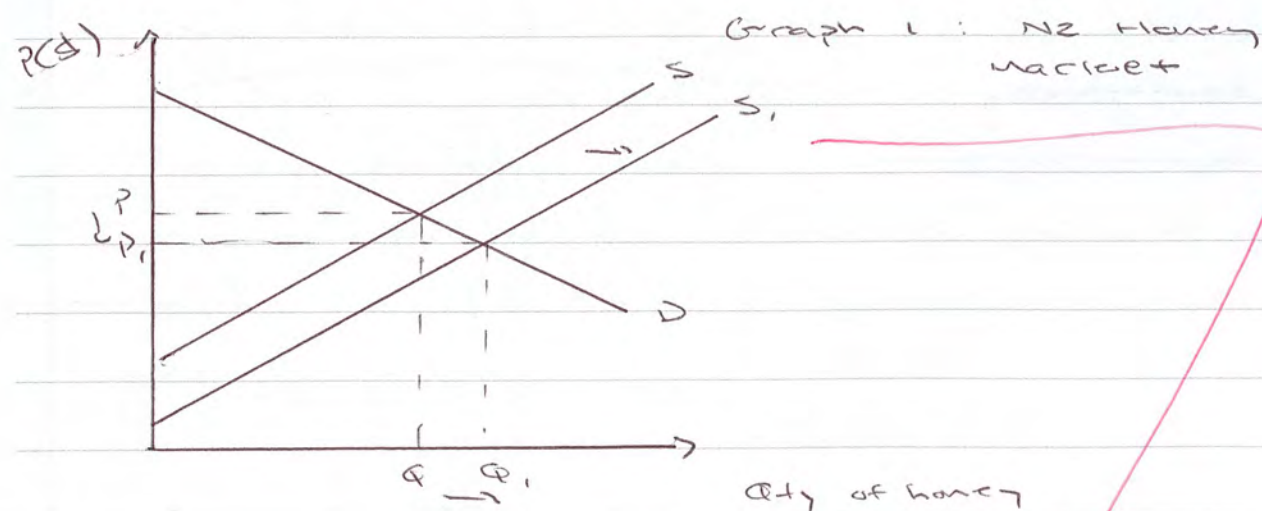 Graph 1 : NZ Honey
Market
P($)
S
S₁
P
P₁
D
Q Q₁
Qty of honey